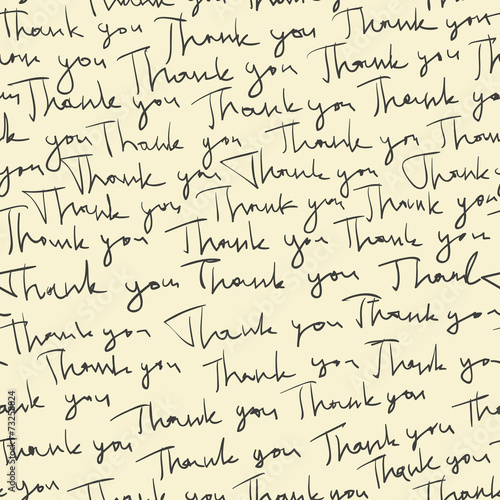 Thank you Thank you
Thank you Thank you Thank
you Thank you Thank you Th
Thank you Thank you Thank you
you Thank you Thank you Thank
you Thank you Thank you Thank
Thank you Thank you Thank you
Thank you Thank you Thank you
Thank you Thank you Thank
Thank you Thank you Thank yo
Thank you Thank you Thank you
you Thank you Thank you Thank
Thank you Thank you Thank you
you Thank you Thank you Thank